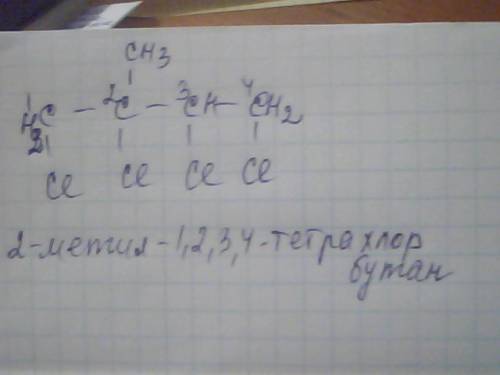 CH3
1 2 3 4
H2C – C – CH – CH2
Cl Cl Cl Cl
2-метил-1,2,3,4-тетрахлор
бутан